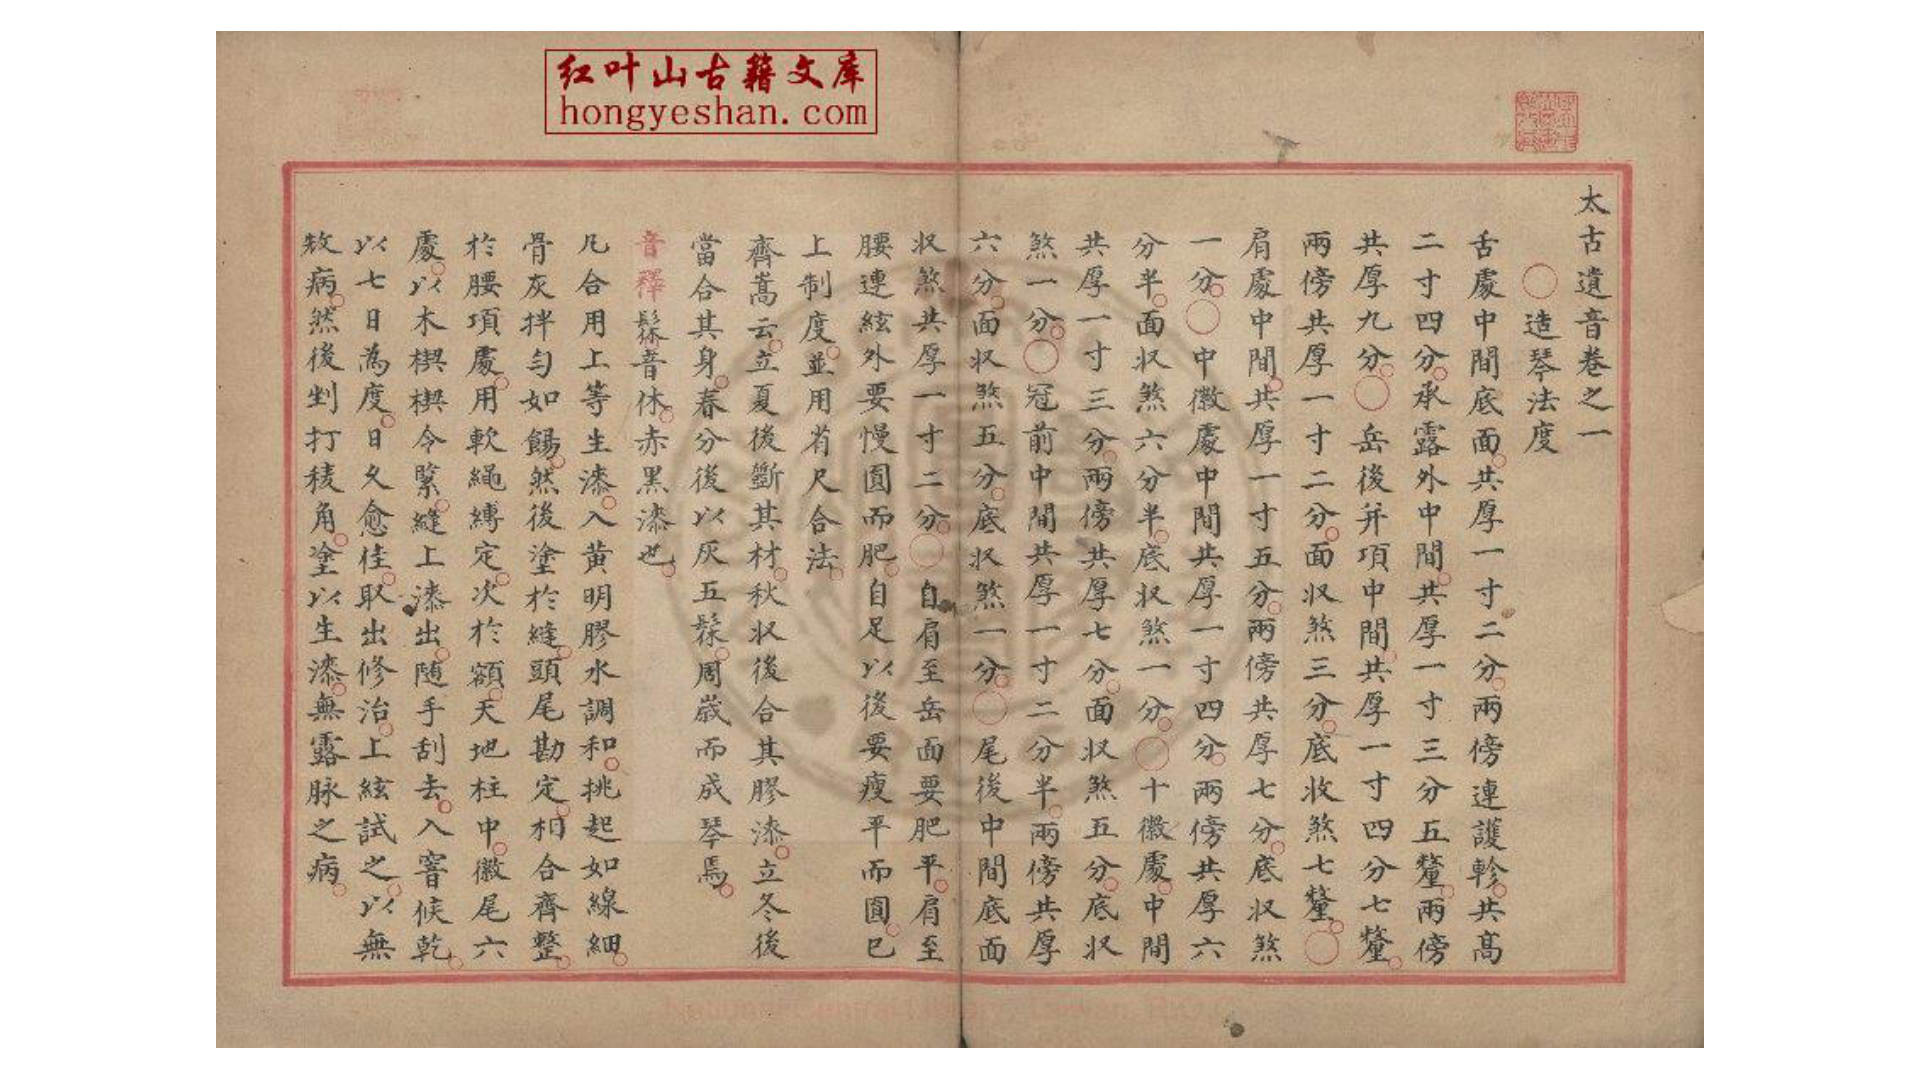 红叶山古籍文库
hongyeshan.com
太古遺音卷之一
○造琴法度
舌處中間底面共厚一寸二分兩傍連護軫共高
二寸四分承露外中間共厚一寸三分五釐兩傍
共厚九分○岳後并項中間共厚一寸四分七釐
兩傍共厚一寸二分面収煞三分底收煞七釐○
肩處中間共厚一寸五分兩傍共厚七分底収煞
一分○中徽處中間共厚一寸四分兩傍共厚六
分半面収煞六分半底収煞一分○十徽處中間
共厚一寸三分兩傍共厚七分面収煞五分底収
煞一分○冠前中間共厚一寸二分半兩傍共厚
六分面収煞五分底収煞一分○尾後中間底面
収煞共厚一寸二分○自肩至岳面要肥平肩至
腰連絃外要慢圓而肥自足以後要瘦平而圓巳
上制度並用省尺合法
齊嵩云立夏後斷其材秋収後合其膠漆立冬後
當合其身春分後以灰五髹周歳而成琴焉
音釋 髹音休赤黑漆也
凡合用上等生漆入黄明膠水調和挑起如線細
骨灰拌匀如餳然後塗於縫頭尾勘定相合齊整
於腰項處用軟繩縛定次於額天地柱中徽尾六
處以木楔楔令緊縫上漆出随手刮去入窨候乾
以七日為度日久愈佳取出修治上絃試之以無
敉病然後剉打稜角塗以生漆無露脉之病